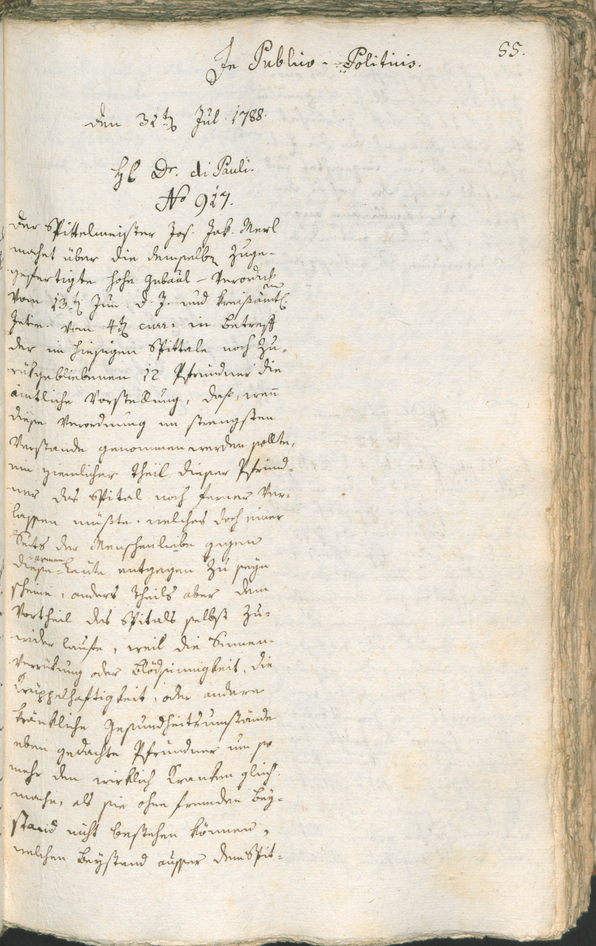 55.
In Publico-Politicis.
den 31ten Jul. 1788.
H. Dr. di Pauli.
No 917.
Der Spittelmeister Jos. Jak. Merl
machet über die demselben zuge-
gefertigte hohe Gubäal-Verordn.
vom 13ten Jun. d. J. und kreisämtl.
Intim. vom 4ten curr. in Betreff
der im hiesigen Spittale noch zu-
rükgebliebenen 12 Pfründner die
ämtliche Vorstellung, daß, wenn
diese Verordnung im strengsten
Verstande genommen werden sollte,
ein ziemlicher Theil dieser Pfründ-
ner das Spital noch ferner ver-
lassen müßte, welches doch einer
Seits der Menschenliebe gegen
diese armen Leute entgegen zu seyn
scheine, anders Theils aber dem
Vortheil des Spitals selbst zu-
wider laufe, weil die Sinnen-
verrükung oder Blödsinnigkeit, die
Krüppelhaftigkeit, oder andere
kränkliche Gesundheitsumstände
eben gedachte Pfründner um so
mehr den wirklich Kranken gleich
mache, als sie ohne fremden Bey-
stand nicht bestehen können,
welchen Beystand ausser dem Spit-